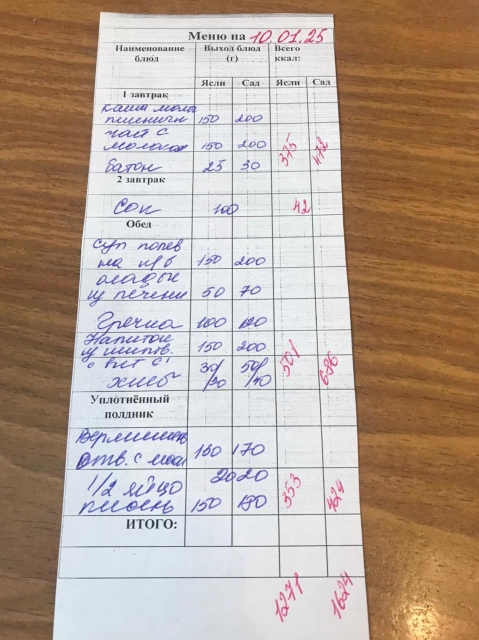 Меню на 10.01.25
Наименование блюд Выход блюд (г) Всего ккал:
Ясли Сад Ясли Сад
1 завтрак
каша моло
пшеничн 150 200
чай с
молоком 150 200 375 472
батон 25 30
2 завтрак
Сок 100 42
Обед
Суп полев
на м/б 150 200
оладьи
из печени 50 70
Гречка 100 120
Напиток
из шипов. 150 200 501
с вит С
хлеб 30/30 50/40 686
Уплотнённый
полдник
Вермишель
отв. с мас 130 170
1/2 яйцо 20 20 353 424
кисель 150 180
ИТОГО:
1271 1624